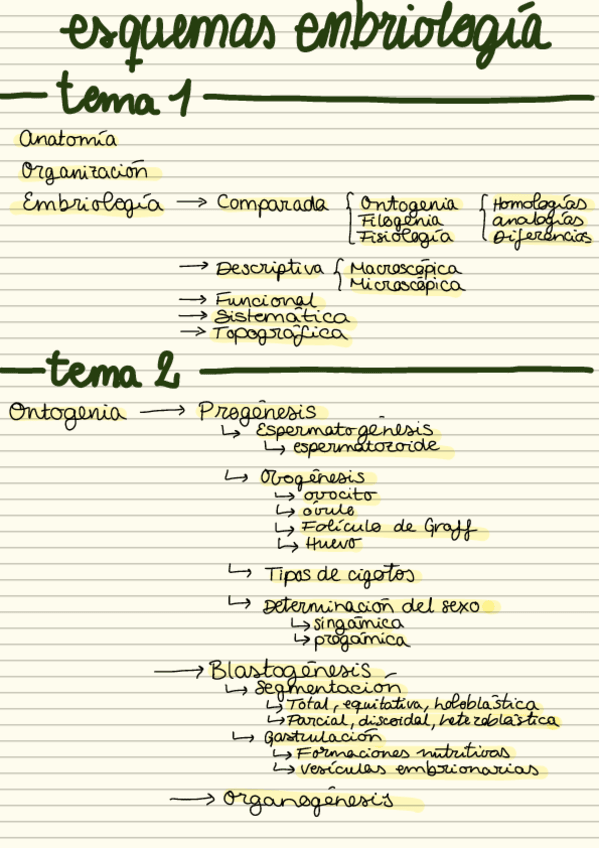 esquemas embriología
tema 1
Anatomía
Organización
Embriología → Comparada { Ontogenia { Homologías
Filogenia analogías
Fisiología Diferencias
→ Descriptiva { Macroscópica
Microscópica
→ Funcional
→ Sistemática
→ Topográfica
tema 2
Ontogenia → Progénesis
↳ Espermatogénesis
↳ espermatozoide
↳ Ovogénesis
↳ ovocito
↳ óvulo
↳ Folículo de Graff
↳ Huevo
↳ Tipos de cigotos
↳ Determinación del sexo
↳ singámica
↳ progámica
→ Blastogénesis
↳ Segmentación
↳ Total, equitativa, holoblástica
↳ Parcial, discoidal, heteroblástica
↳ Gastrulación
↳ Formaciones nutritivas
↳ vesículas embrionarias
→ Organogénesis